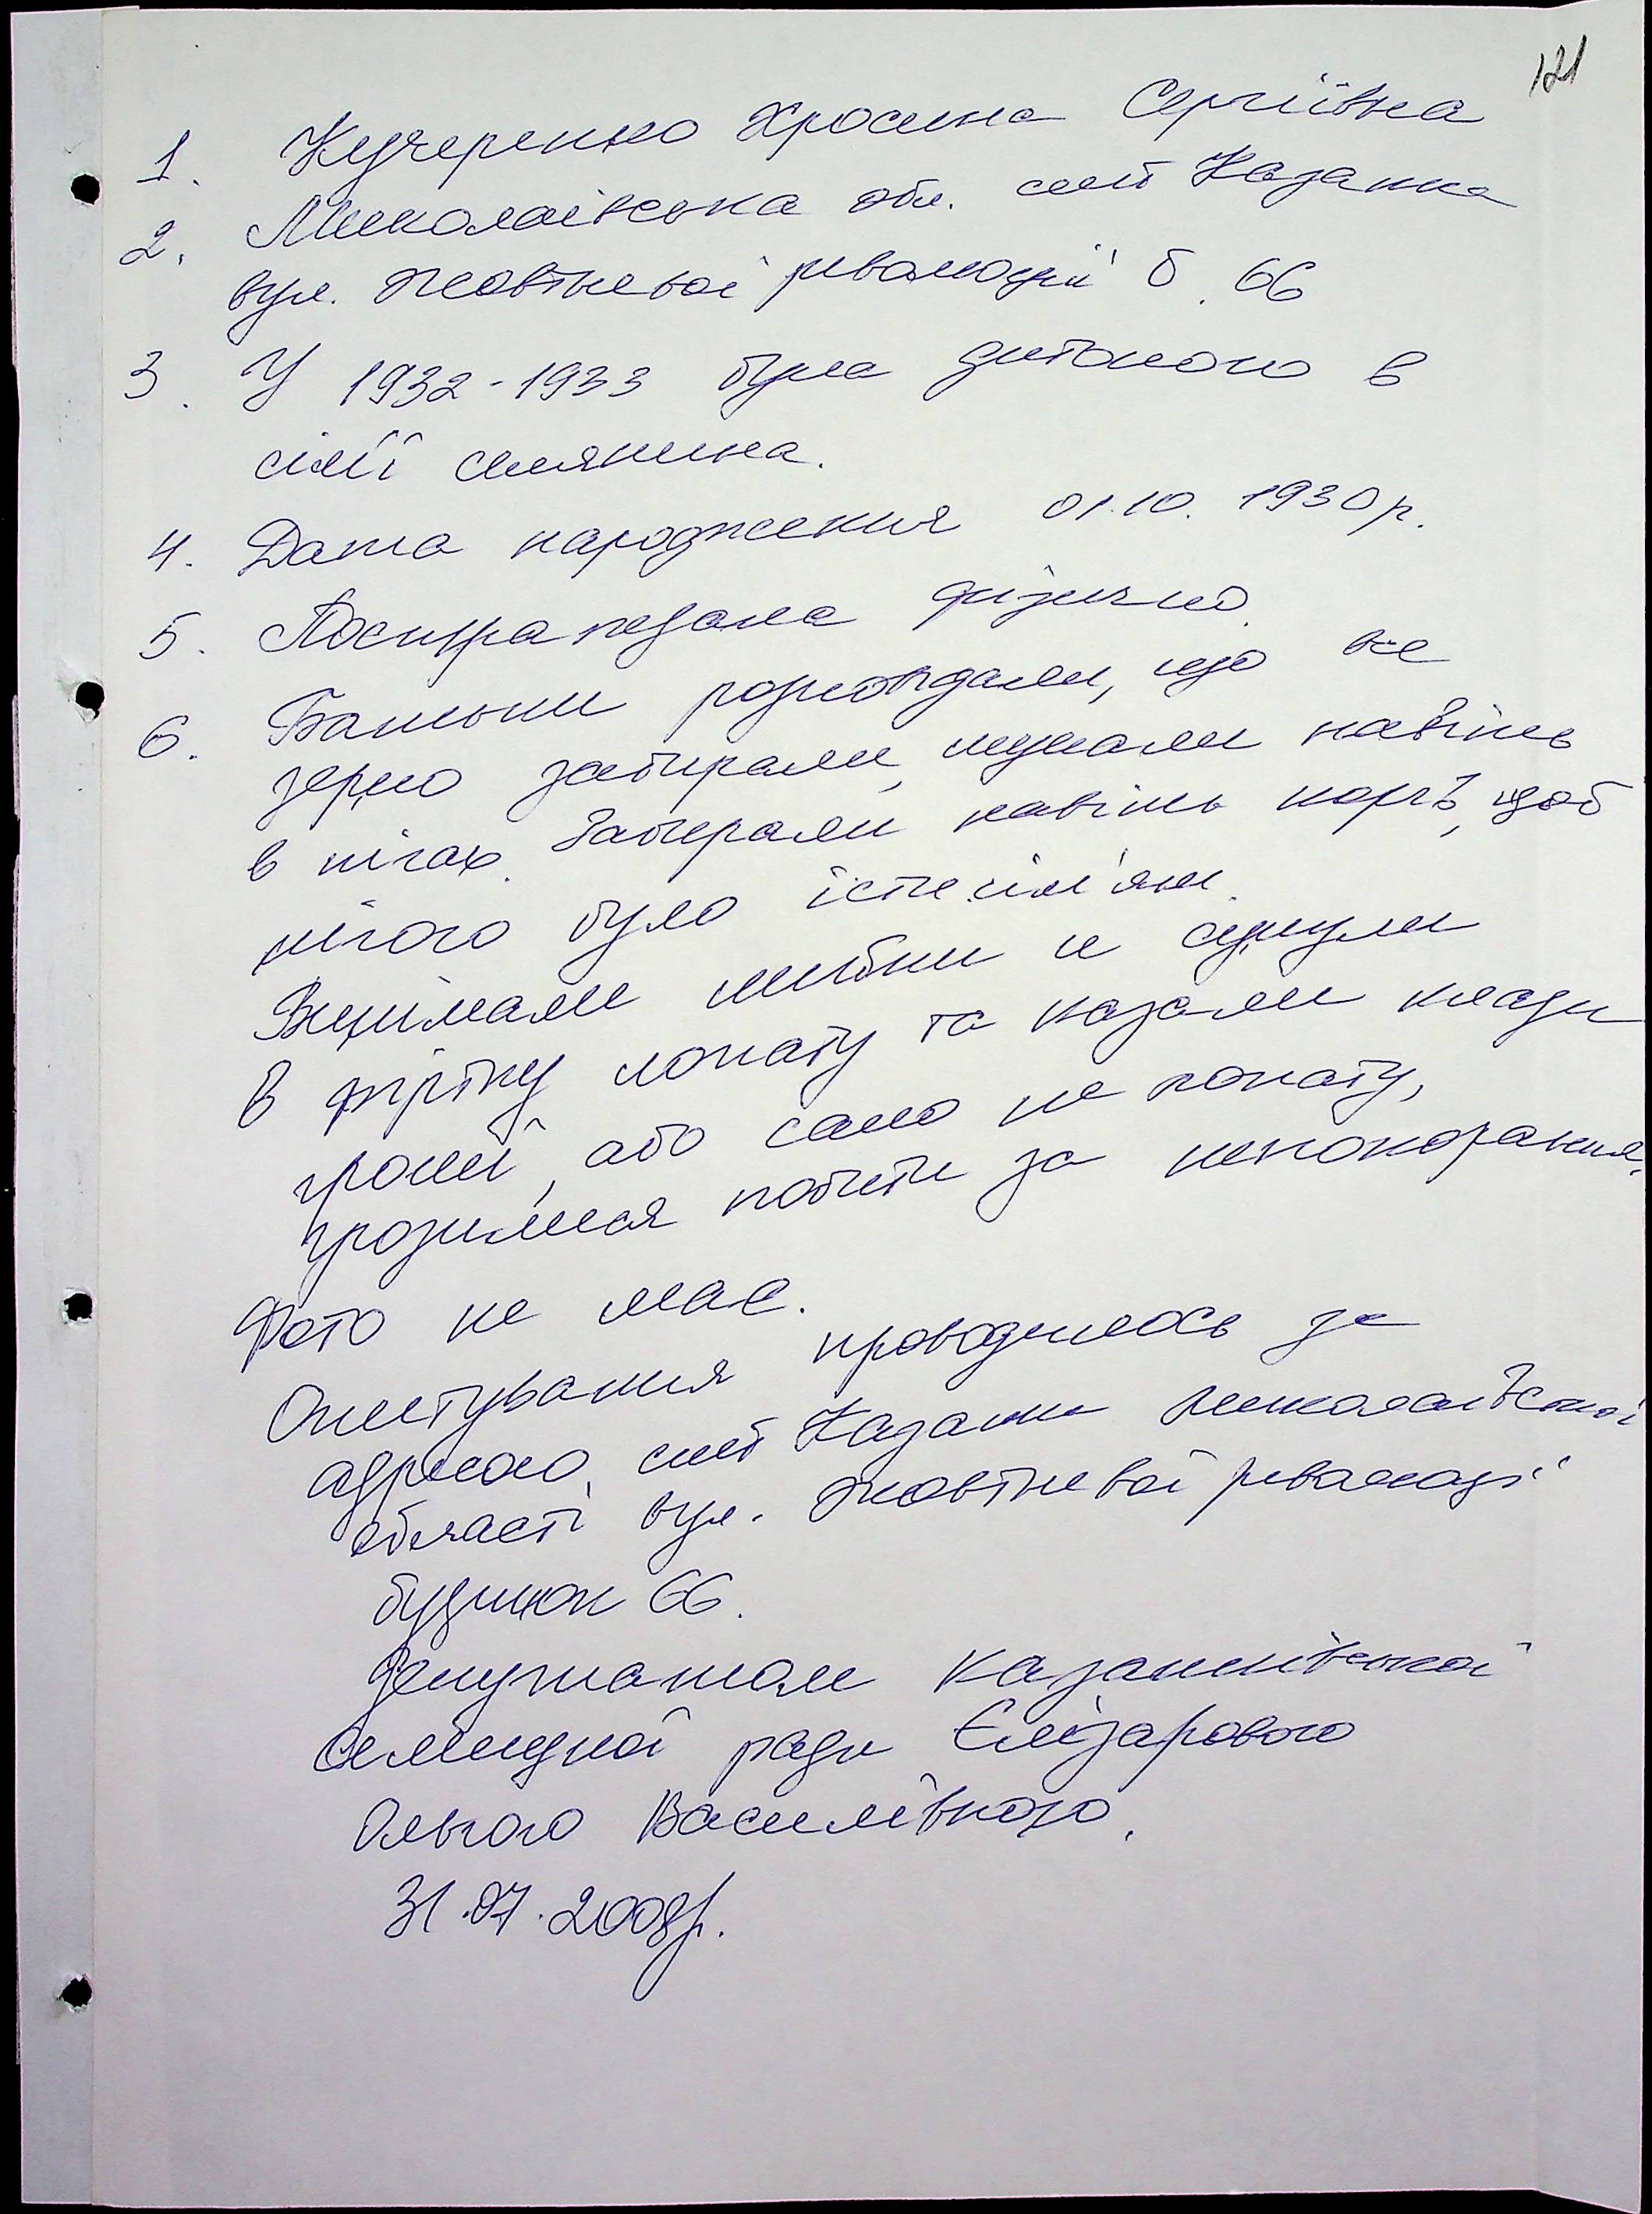 121
1. Кучеренко Хросина Сергіївна
2. Миколаївська обл. смт Казанка
вул. Жовтневої революції б. 66
3. У 1932-1933 була дитиною в
сім'ї селянина.
4. Дата народження 01.10.1930р.
5. Постраждала фізично.
6. Батьки розповідали, що все
зерно забирали, шукали навіть
в пічах. Забирали навіть корж, щоб
нічого було їсти сім'ям.
Виймали шибки и сунули
в хвіртку лопату та казали клади
гроші, або сало на лопату,
грозилися побити за непокорання.
Фото не має.
Опитування проводилось за
адресою смт Казанка Миколаївської
області вул. Жовтневої революції
будинок 66.
Депутатом Казанківської
селищної ради Єлізаровою
Ольгою Василівною.
31.07.2008р.